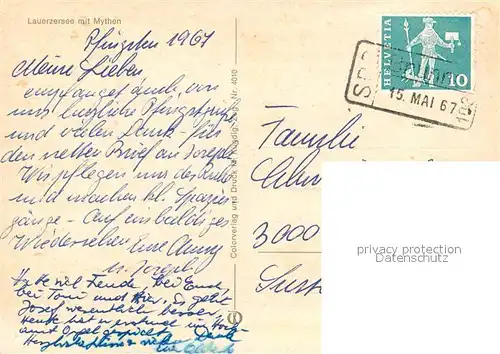 Lauerzersee mit Mythen
Pfingsten 1967
Meine Lieben
empfanget auch von
mir herzliche Pfingstgrüsse
und vielen Dank für
den netten Brief an Joseph.
Wir pflegen der Ruhe
und machen kl. Spazier
gänge - Auf ein baldiges
Wiedersehen Eure Anny
u. Joseph
Hatte viel Freude, bei Euch,
bei Toni und hier. Es geht
Josef wesentlich besser.
Heute hat er erstmals im
amt Orgel gespielt.
Herzlich
Colorverlag und Druck Nr. 4010
HELVETIA
10
15. MAI 67
Familie
3000
privacy protection